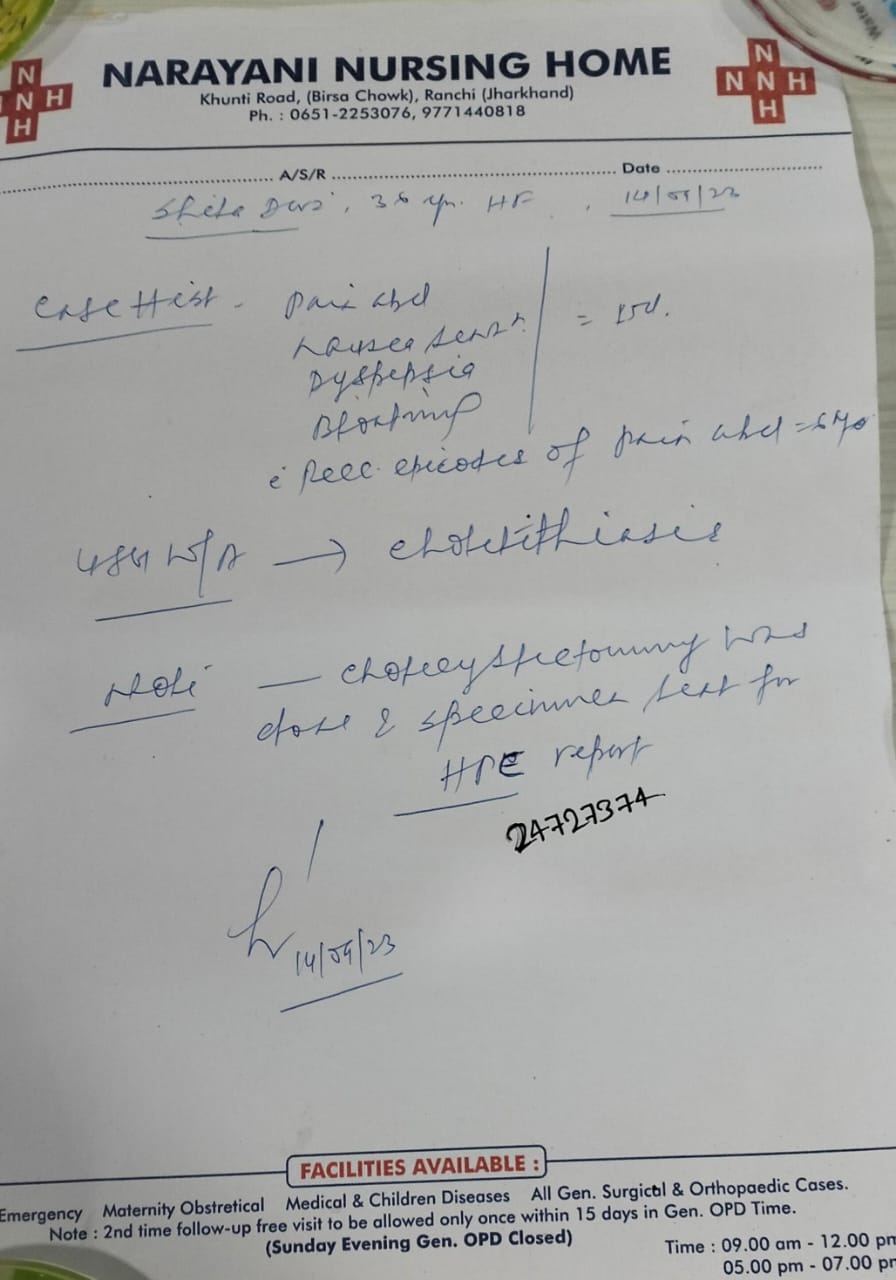 NARAYANI NURSING HOME
Khunti Road, (Birsa Chowk), Ranchi (Jharkhand)
Ph. : 0651-2253076, 9771440818
N
N H
H
N
N N H
H
A/S/R Date
Devi, yr. HF, 14/09/23
Case Hist - Pain abd
Nausea sensn
Dyspepsia
Bloating
= 15d.
c̄ Recc. episodes of pain abd = 6 mo
USG W/A → Cholelithiasis
Note — Cholecystectomy was
done & specimen sent for
HPE report
24727374
14/09/23
FACILITIES AVAILABLE :
Emergency Maternity Obstretical Medical & Children Diseases All Gen. Surgical & Orthopaedic Cases.
Note : 2nd time follow-up free visit to be allowed only once within 15 days in Gen. OPD Time.
(Sunday Evening Gen. OPD Closed)
Time : 09.00 am - 12.00 pm
05.00 pm - 07.00 pm
Water